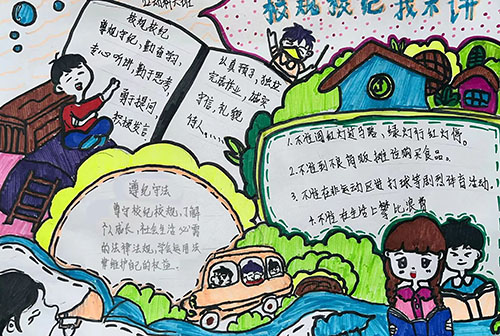 校规校纪我来讲
校规校纪
遵规守纪,勤奋学习,
专心听讲,勤于思考,
勇于提问,
积极发言。
认真预习,独立
完成作业,诚实
守信,礼貌
待人……
遵纪守法
遵守校纪校规,了解
个人成长,社会生活必需
的法律法规,学会运用法
律维护自己的权益。
1.不准闯红灯过马路,绿灯行红灯停。
2.不准到不良商贩摊位购买食品。
3.不准在非运动区进行打球等剧烈体育活动。
4.不准在生活上攀比浪费